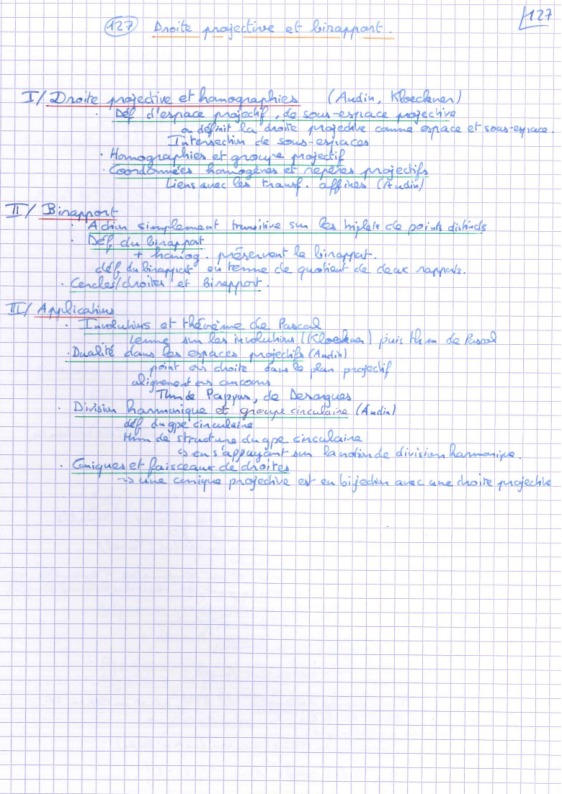 127
127 Droite projective et birapport.
I/ Droite projective et homographies (Audin, Kloeckner)
· Déf d'espace projectif, de sous-espace projective
on définit la droite projective comme espace et sous-espace.
Intersection de sous-espaces
· Homographies et groupe projectif
· Coordonnées homogènes et repères projectifs
Liens avec les transf. affines (Audin)
II/ Birapport
· Action simplement transitive sur les triplets de points distincts
· Déf du birapport
+ homog. préservent le birapport.
déf du birapport en terme de quotient de deux rapports.
· Cercles/droites et birapport.
III/ Applications
· Involutions et théorème de Pascal
lemme sur les involutions (Kloeckner) puis thm de Pascal
· Dualité dans les espaces projectifs (Audin)
point ↔ droite dans le plan projectif
alignement ↔ concours
Thm de Pappus, de Desargues
· Division harmonique et groupe circulaire (Audin)
déf du gpe circulaire
thm de structure du gpe circulaire
↳ en s'appuyant sur la notion de division harmonique.
· Coniques et faisceaux de droites
→ une conique projective est en bijection avec une droite projective